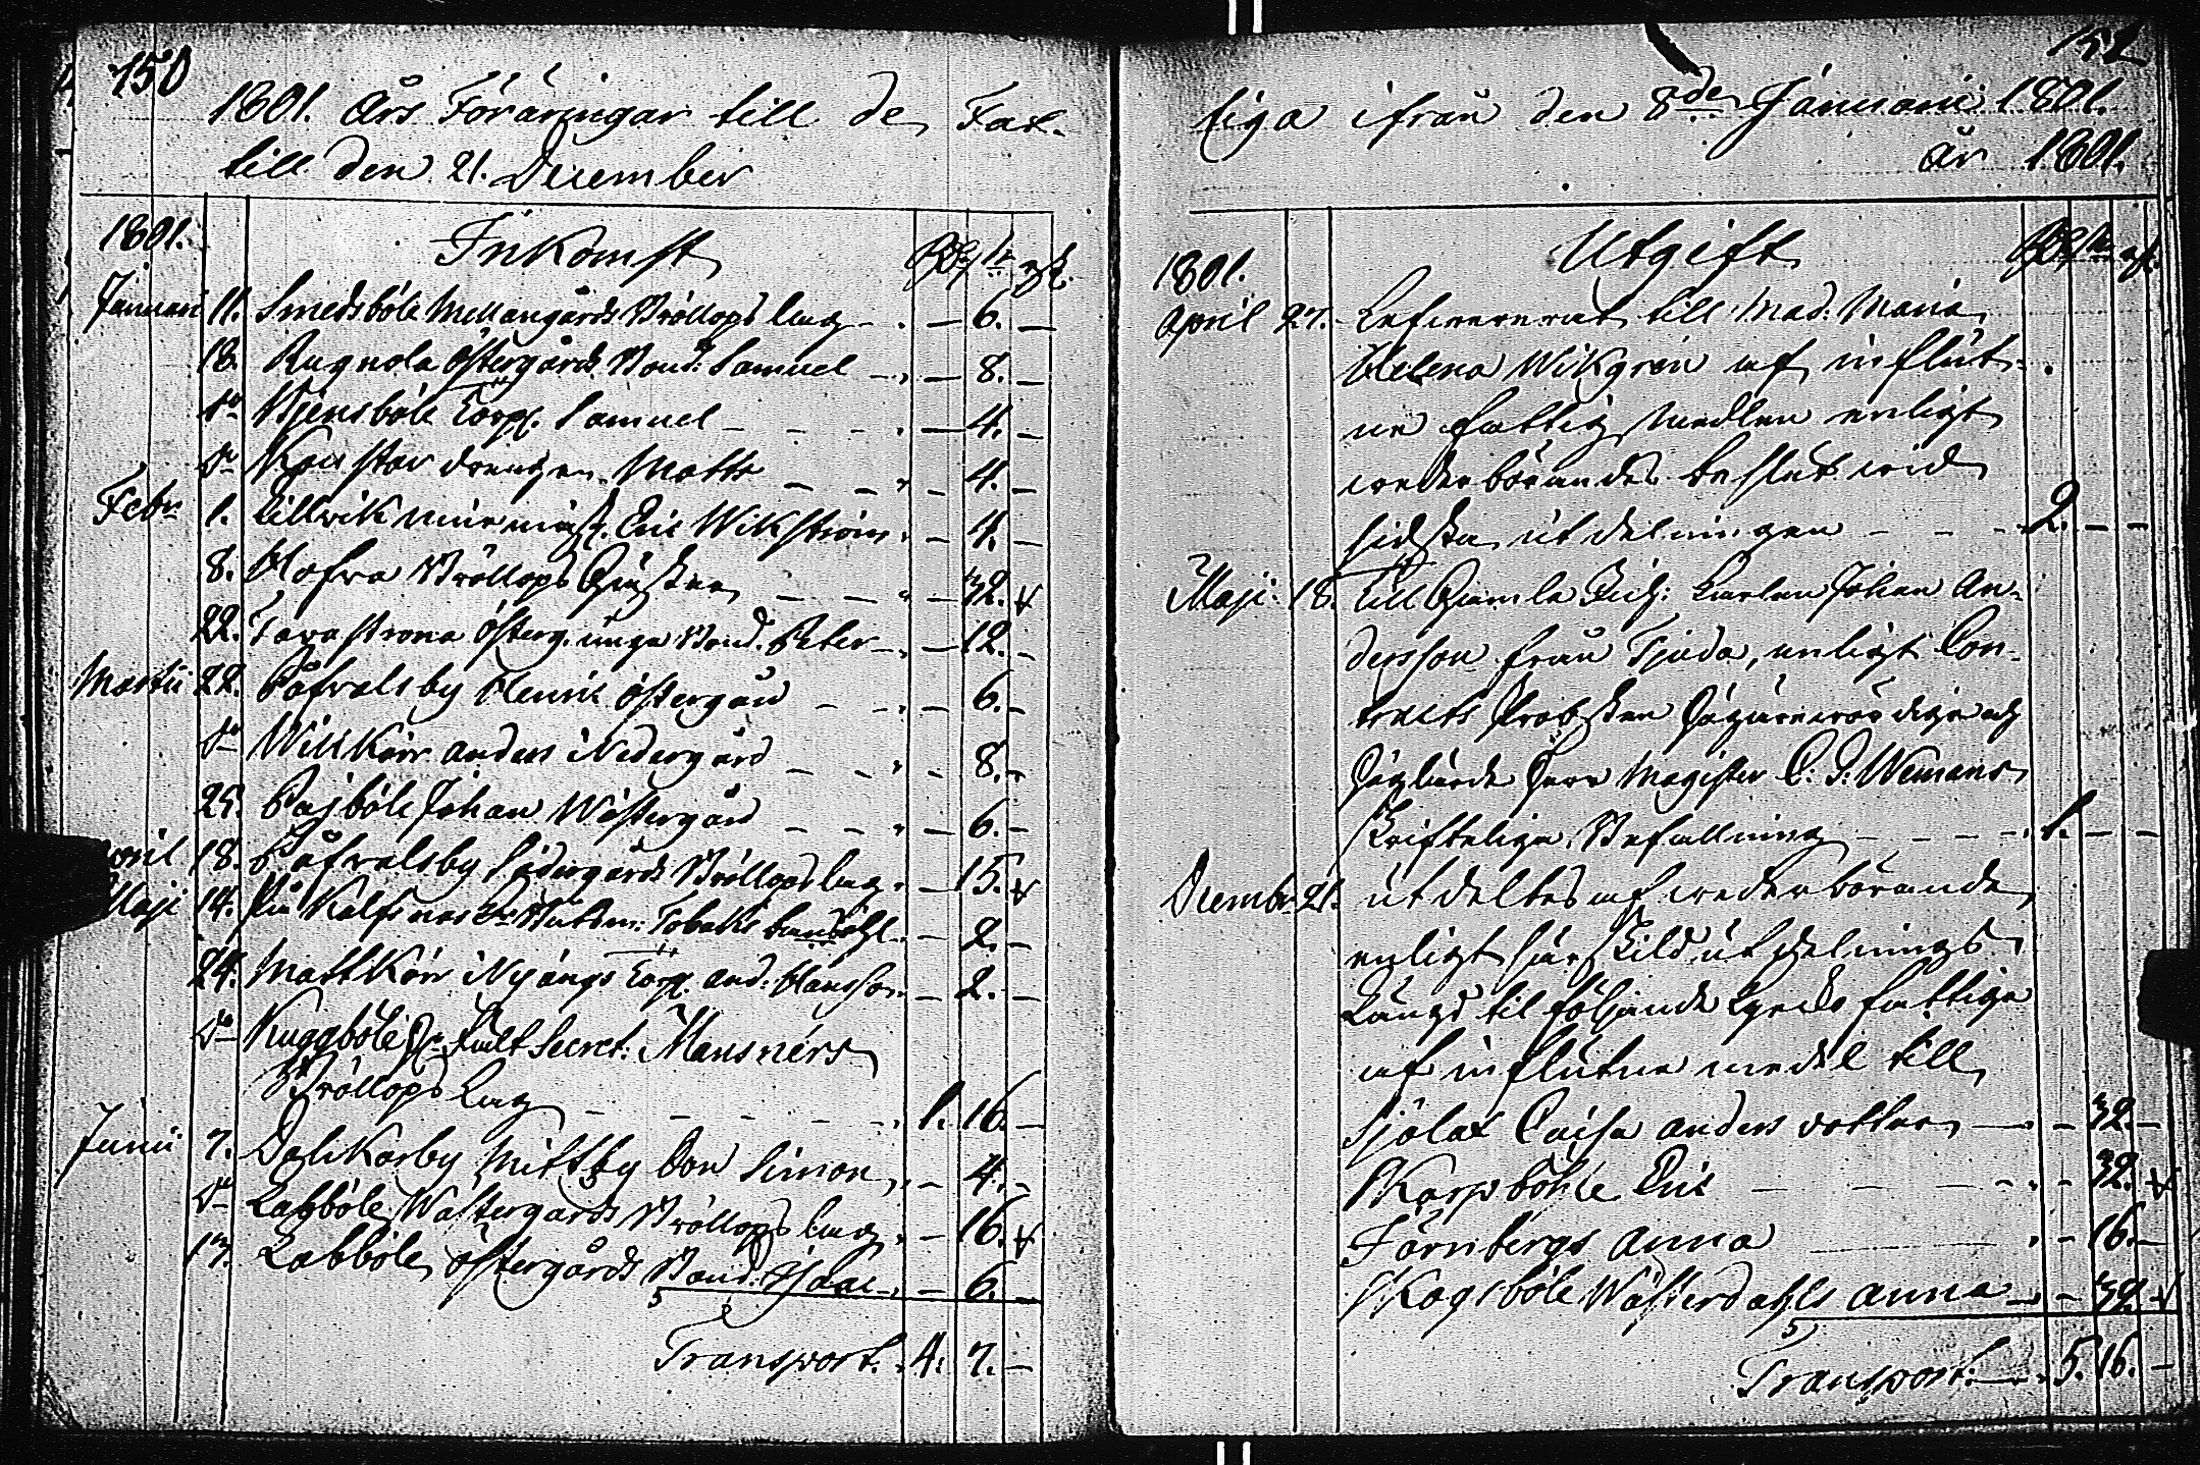 150
1801. Års Föräringar till de Fat-
till den 21. December
1801. Inkomst Rdr sk. rst.
Januari 11. Smedsböle Mellangårds Bröllops lag - 6. -
18. Rugnola Östergårds Bond: Samuel - 8. -
do Bjensböle Torp. Samuel - 4. -
do Konstar drengen Matts - 4. -
Febr. 1. Lillvik murmäst. Eric Wikström - 4. -
8. Hofva Bröllops Gäster - 32. +
22. Tavastrona Österg. unga Bond. Peter - 12. -
Martii 22. Påfvalsby Henric Östergård - 6. -
do Willkärr Anders Nedergård - 8. -
25. Pajböle Johan Wästergård - 6. -
April 18. Påfvalsby Södergårds Bröllops lag - 15. +
Maji 14. På Kalfsnäs Tobaks - 2. -
24. Mattkärr Nyängs Torp. And: Hansson - 2. -
do Kuggböle Hr Fält Secret: Mansners
Bröllops Lag - 1. 16. -
Junii 7. Dalkarby Mittby Bon Simon - 4. -
do Labböle Wästergårds Bröllops lag - 16. +
17. Labböle Östergårds Bond: Isaac - 6. -
Transport. 4. 7. -
152
tiga ifrån den 8de Januarii 1801.
år 1801.
1801. Utgift Rdr sk. rst.
April 27. Lefvererat till Mad: Maria
Helena Wikgren af influt-
ne fattig medlen enligt
wederbörandes beslut wid
sidsta utdelningen - 2. - -
Maji 18. till Gamla Karlen Johan An-
dersson från Tjuda, enligt Con-
tracts Probsten Högärevördige och
Höglärde Herr Magister C: P: Wemans
Skriftelige Befallning - 1. - -
Decembr 21. utdeltes af wederbörande
enligt särskild utdelnings
Längd til följande Kyrcko fattige
af influtne medel till
Sjölax Caisa Anders dotter - 32. -
Skarpböhle Eric - 32. +
Förnbergs Anna - 16. -
Skogsböle Wästerdahls Anna - 32. +
Transport. 5. 16. -